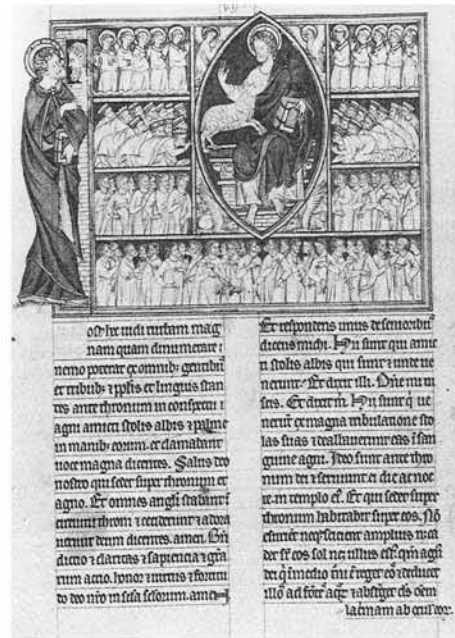 ost hec uidi turbam mag
nam quam dinumerare
nemo poterat ex omnib; gentib;
et tribub; et pplis et linguis stan
tes ante thronum in conspectu
agni amicti stolis albis et palme
in manib; eorum. et clamabant
uoce magna dicentes. Salus deo
nostro qui sedet super thronum et
agno. Et omnes angli stabant
circuitu throni et ceciderunt
dicentes. amen.
dictio et claritas et sapiencia et
actio. honor et uirtus et fortitu
do deo nro in scla sclorum. amen
Et respondens unus de senioribus
dicens michi. Hii sunt qui amic
ti stolis albis qui sunt et unde ue
nerunt. Et dixit illi. Dne mi tu
scis. Et dixit m. Hii sunt q ue
nerut ex magna tribulatione sto
las suas et dealbauerunt eas i san
guine agni. Ideo sunt ante thro
num dei et seruiunt ei die ac noc
te in templo. Et qui sedet super
thronum habitabit super eos. Non
esurient neq; sicient amplius n; ca
det sr eos sol nec ullus est. qm agn
reget eos et deducet
illos ad et absterget ds oem
lacrimam ab